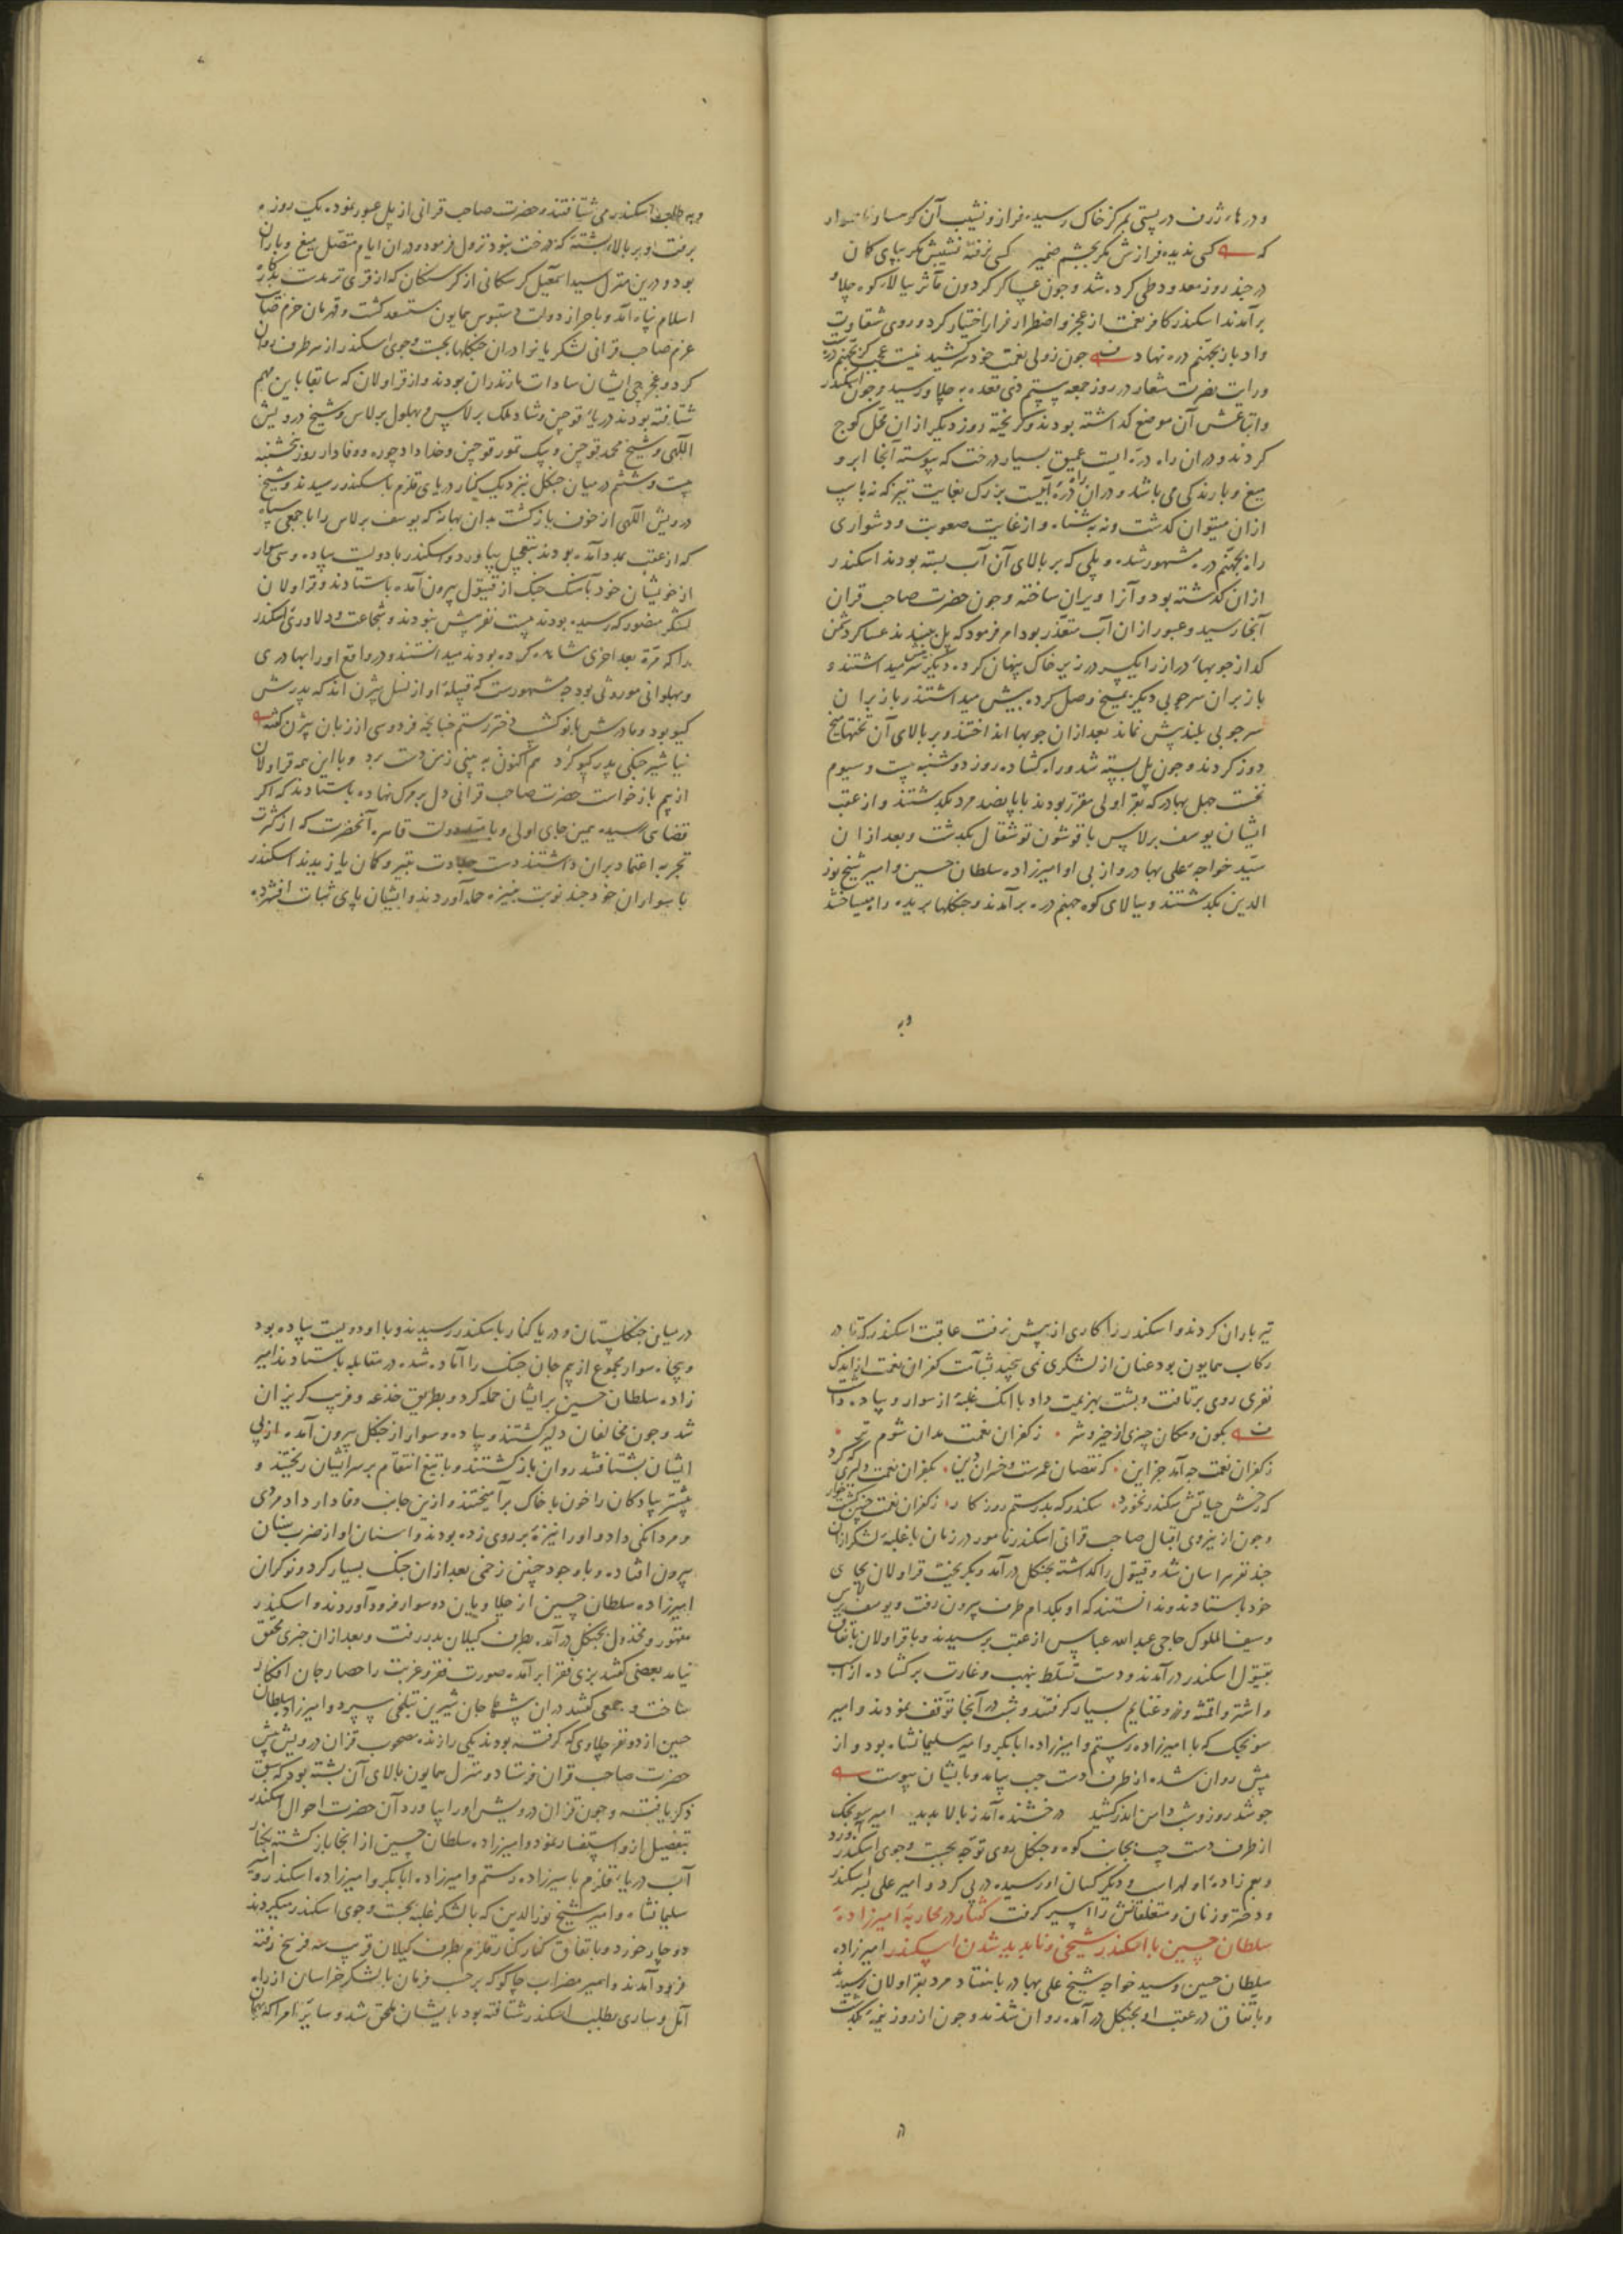 و درهاء ژرف در پستی بمرکز خاک رسیده فراز و نشیب آن کوهسار ناهموار
که کسی ندیده فرازش مکر بچشم ضمیر کسی نرفته نشیبش مکر بپای کمان
در چند روز معدود طی کرده شد و چون عساکر کردون مآثر ببالاء کوه چلاو
برآمدند اسکندر کافر نعمت از عجز و اضطرار فرار اختیار کرد و روی شقاوت
و ادبار بجهنم دره نهاد چون ز ولی نعمت خود سر کشید نیست عجب کر بجهنم دره
و رایت نصرت شعار در روز جمعه بیستم ذی قعده به چلاو رسید و چون اسکندر
و اتباعش آن موضع کذاشته بودند و کریخته روز دیکر از آن محل کوچ
کردند و در آن راه دره ایست عمیق بسیار درخت که پیوسته آنجا ابر و
میغ و بارندکی می باشد و در آن دره آبیست بزرک بغایت تیز که نه باسب
از آن میتوان کذشت و نه بشناه و از غایت صعوبت و دشواری
راه بجهنم دره مشهور شده و پلی که بر بالای آن آب بسته بودند اسکندر
از آن کذشته بود و آنرا ویران ساخته و چون حضرت صاحب قران
آنجا رسید و عبور از آن آب متعذر بود امر فرمود که پل ببندند عساکر دشمن
کداز چوبهاء دراز را یکسر در زیر خاک پنهان کرده دیکر سرش پیش میداشتند و
باز بر آن سر چوبی دیکر بمیخ وصل کرده پیش میداشتند و باز بر آن
سر چوبی بلند پیش نماند بعد از آن چوبها انداختند و بر بالای آن تختها بمیخ
دوز کردند و چون پل بسته شد و راه کشاده روز دوشنبه بیست و سیوم
نخست چهل بهادر که بقراولی مقرر بودند با پانصد مرد بکذشتند و از عقب
ایشان یوسف برلاس با قوشون توشقال بکذشت و بعد از آن
سید خواجه علی بهادر و از پی او امیرزاده سلطان حسین و امیر شیخ نور
الدین بکذشتند و ببالای کوه جهنم دره برآمدند و جنکلها بریده راه میساختند
وبه
و به طلب اسکندر می شتافتند و حضرت صاحب قرانی از پل عبور نموده یک روزه
برفت و بر بالاء پشتهٔ که درخت نبود نزول فرمود و در آن ایام متصل میغ و باران
بود و درین منزل سید اسمعیل کرسکانی از کرسنکان که از قری ترمدست بدرکاه
اسلام پناه آمد و باحراز دولت دستبوس همایون مستسعد کشت و قهرمان حزم صاحب
عزم صاحب قرانی لشکریانرا در آن جنکلها بجست و جوی اسکندر از هر طرف روان
کرد و غجرچی ایشان سادات مازندران بودند و از قراولان که سابقا باین مهم
شتافته بودند دریاء قوچین و شاد ملک برلاس و بهلول برلاس و شیخ درویش
اللهی و شیخ محمد قوچین و بیک تمور قوچین و خداداد چوره و وفادار روز پنجشنبه
بیست و ششم در میان جنکل نزدیک کنار دریای قلزم باسکندر رسیدند و شیخ
درویش اللهی از خوف بازکشت بدان بهانه که یوسف برلاس را با جمعی سپاه
که از عقب بمدد آمده بودند بتعجیل بیاورد و اسکندر با دویست پیاده و سی سوار
از خویشان خود بآهنک جنک از قیتول بیرون آمده باستادند و قراولان
لشکر منصور که رسیده بودند بیست نفر بیش نبودند و شجاعت و دلاوری اسکندر
را که مرة بعد اخری مشاهده کرده بودند میدانستند و در واقع او را بهادری
و پهلوانی موروثی بود چه مشهورست که قبیلهٔ او از نسل بیژن اند که پدرش
کیو بود و مادرش بانو کشسب دختر رستم چنانچه فردوسی از زبان بیژن کفته
نیا شیر جنکی پدر کیو کرد هم اکنون به بینی ز من دست برد و با این همه قراولان
از بیم بازخواست حضرت صاحب قرانی دل بر مرک نهاده باستادند که اکر
قضای رسیده همین جای اولی و دولت قاهره آنحضرت که از کثرت
تجربه اعتماد بر آن داشتند دست جلادت بتیر و کمان یازیدند اسکندر
با سواران خود چند نوبت بنیزه حمله آوردند و ایشان پای ثبات افشرده
تیرباران کردند و اسکندر را کاری از پیش نرفت عاقبت اسکندر که تا در
رکاب همایون بود عنان از لشکری نمی پیچید بشآمت کفران نعمت از اندک
نفری روی برتافت و پشت بهزیمت داد با آنک غلبهٔ از سوار و پیاده داشت
بکون و مکان چیزی از خیر و شر ز کفران نعمت مدان شوم تر
ز کفران نعمت چه آمد جز این که نقصان عمرست و خسران دین بکفران نعمت دلیری
که رخش حیاتش سکندر نخورد سکندر که بد رستم روزکار ز کفران نعمت چنین کشت خوار
و چون از نیروی اقبال صاحب قرانی اسکندر نامور در زمان با غلبهٔ لشکر از آن
چند نفر هراسان شد و قیتول را کذاشته بجنکل درآمد و بکریخت قراولان بجای
خود باستادند و ندانستند که او بکدام طرف بیرون رفت و یوسف برلاس
و سیف الملوک حاجی عبدالله عباس از عقب برسیدند و با قراولان باتفاق
بقیتول اسکندر درآمدند و دست تسلط بنهب و غارت برکشاده از اسب
و اشتر و اقمشه و زر و غنایم بسیار کرفتند و شب در آنجا توقف نمودند و امیر
سونجک که با امیرزاده رستم و امیرزاده ابابکر و امیر سلیمانشاه بود و از
پیش روان شده از طرف دست چپ بیامد و بایشان پیوست
چو شد روز و شب دامن اندر کشید درخشنده آمد ز بالا پدید امیر سونجک
از طرف دست چپ بجانب کوه و جنکل روی توجه بجست و جوی اسکندر آورد
و عم زادهٔ او لهراسب و دیکر کسان او رسیده درپی کرد و امیر علی پسر اسکندر
و دختر و زنان و متعلقانش را اسیر کرفت کفتار در محاربهٔ امیرزادهٔ
سلطان حسین با اسکندر شیخی و ناپدید شدن اسکندر امیرزاده
سلطان حسین و سید خواجه شیخ علی بهادر با هفتاد مرد بقراولان رسیدند
و باتفاق در عقب او بجنکل درآمده روان شدند و چون از روز نیمه بکذشت
در میان جنکلستان و دریا کنار باسکندر رسیدند و با او دویست پیاده بود
و پنجاه سوار مجموع از بیم جان جنک را آماده شده در مقابله باستادند امیر
زاده سلطان حسین بر ایشان حمله کرد و بطریق خدعه و فریب کریزان
شد و چون مخالفان دلیر کشتند و پیاده و سوار از جنکل بیرون آمده از پی
ایشان بشتافتند روان بازکشتند و با تیغ انتقام بر سر ایشان ریختند و
بیشتر پیادکان را خون با خاک برآمیختند و ازین جانب وفادار داد مردی
و مردانکی داد و او را نیزهٔ بر روی زده بودند و اسنان او از ضرب سنان
بیرون افتاده و با وجود چنین زخمی بعد از آن جنک بسیار کرد و نوکران
امیرزاده سلطان حسین از چلاویان ده سوار فرود آوردند و اسکندر
مقهور و مخذول بجنکل درآمده بطرف کیلان بدر رفت و بعد از آن خبری محقق
نیامد بعضی کفتند بزی فقرا برآمده صورت فقر و غربت را حصار جان افکار
ساخت و جمعی کفتند در آن بیشها جان شیرین بتلخی سپرد و امیرزاده سلطان
حسین از دو نفر چلاوی که کرفته بودند یکی را زنده مصحوب قزان درویش پیش
حضرت صاحب قران فرستاد و منزل همایون بالای آن پشته بود که سبق
ذکر یافت و چون قزان درویش او را بیاورد آن حضرت احوال اسکندر
بتفصیل ازو استفسار نمود و امیرزاده سلطان حسین از آنجا بازکشته بکنار
آب دریاء قلزم بامیرزاده رستم و امیرزاده ابابکر و امیرزاده اسکندر و امیر
سلیمانشاه و امیر شیخ نورالدین که با لشکر غلبه بجست و جوی اسکندر میکردیدند
دوچار خورد و باتفاق کنار کنار قلزم بطرف کیلان قریب سه فرسخ رفته
فرود آمدند و امیر مضراب جاکو که بر حسب فرمان با لشکر خراسان از راه
آمل و ساری بطلب اسکندر شتافته بود بایشان ملحق شد و سایر امرا که